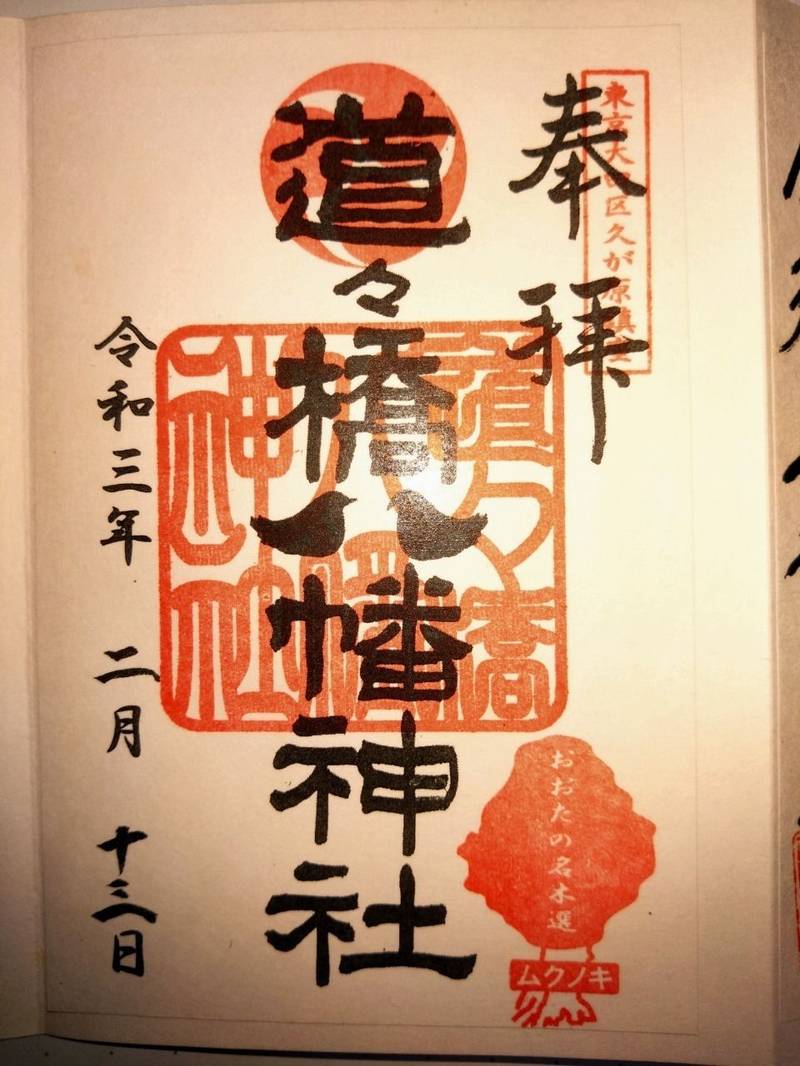 東京大田区久が原鎮座
奉拝
道々橋八幡神社
道々橋
八幡
神社
令和三年 二月 十三日
おおたの名木選
ムクノキ